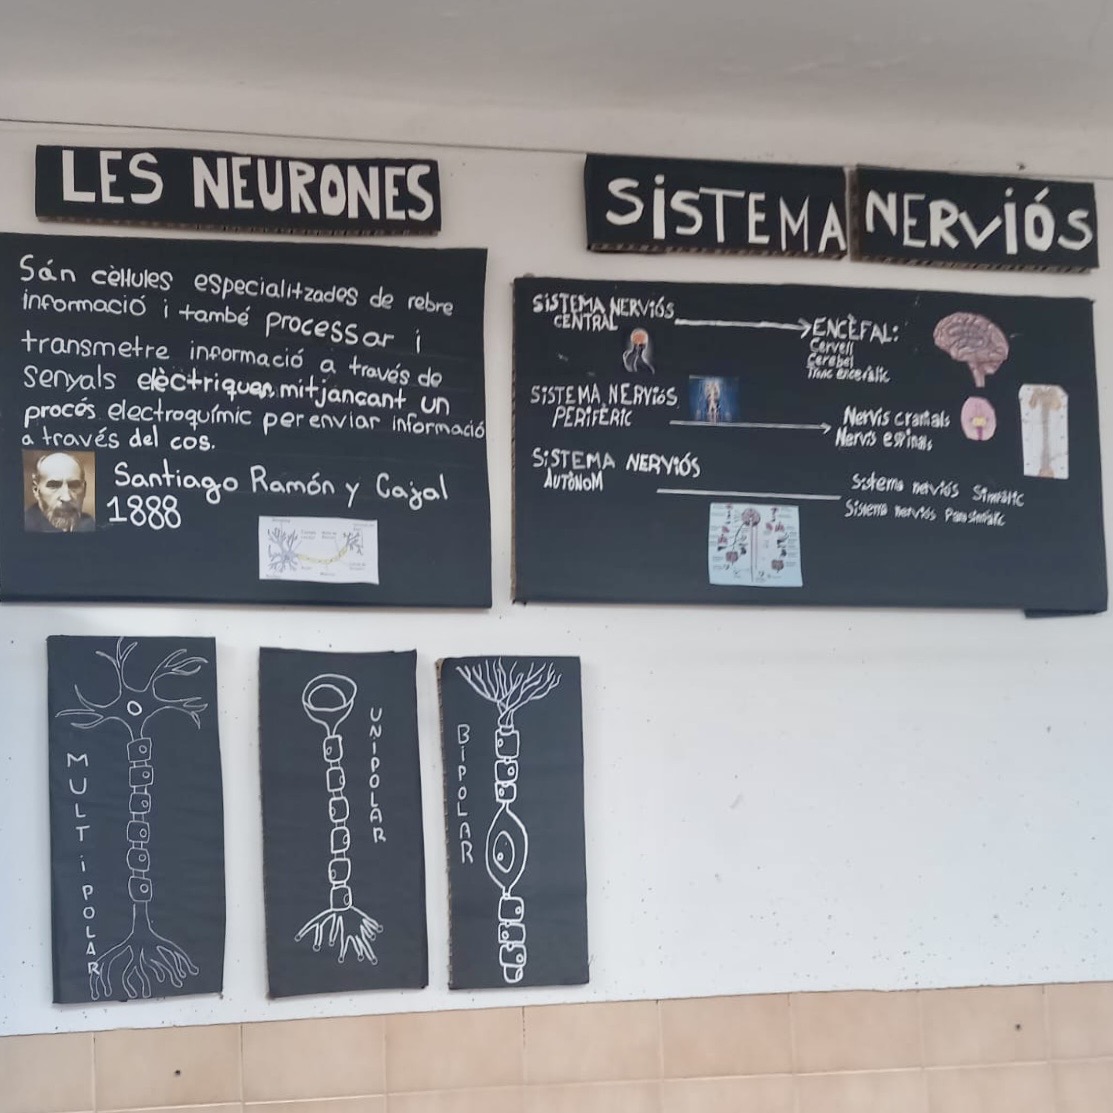 LES NEURONES
Són cèl·lules especialitzades de rebre
informació i també processar i
transmetre informació a través de
senyals elèctriques, mitjançant un
procés electroquímic per enviar informació
a través del cos.
Santiago Ramón y Cajal
1888
SiSTEMA NERViÓS
SiSTEMA NERViÓS
CENTRAL
ENCÈFAL:
Cervell
Cerebel
Tronc encefàlic
SISTEMA NERViÓS
PERIFÈRIC
Nervis cranials
Nervis espinals
SiSTEMA NERViÓS
AUTÒNOM
Sistema nerviós Simpàtic
Sistema nerviós Parasimpàtic
MULTiPOLAR
UNIPOLAR
BiPOLAR